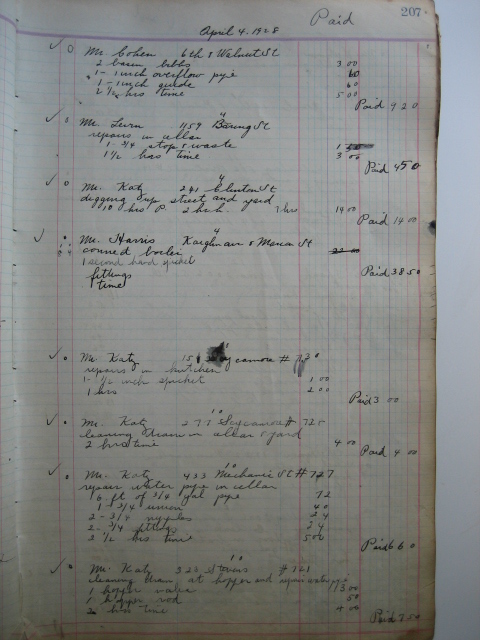 207
Paid
April 4. 1928
Mr. Cohen 6th & Walnut St
2 basin bibbs 3 00
1 - 1 inch overflow pipe 60
1 - 1 inch 60
2 1/2 hrs time 5 00
Paid 9 20
4
Mr. Levin 1159 St
repairs in cellar
1 - 3/4 stop & waste 1
1 1/2 hrs time 3 00
Paid 4 50
4
Mr. Katz 241 Clinton St
digging up street and yard
7 hrs 14 00
Paid 14 00
4
Mr. Harris Kaighn ave & St
boiler
1 second hand spicket
fittings
time
Paid 38 50
Mr. Katz Sycamore # 730
repairs in kitchen
1 - 1/2 inch spicket 1 00
1 hrs 2 00
Paid 3 00
10
Mr. Katz 277 Sycamore # 725
cleaning drain in cellar & yard
2 hrs time 4 00
Paid 4 00
10
Mr. Katz 433 Mechanic St # 727
repair water pipe in cellar
6 ft of 3/4 gal pipe 72
1 - 3/4 union 40
2 - 3/4 nipples 24
2 - 3/4 fittings 24
2 1/2 hrs time 5 00
Paid 6 60
10
Mr. Katz Stevens # 721
cleaning drain at hopper and water pipe
1 hopper valve 3 00
1 hopper rod 50
2 hrs time 4 00
Paid 7 50